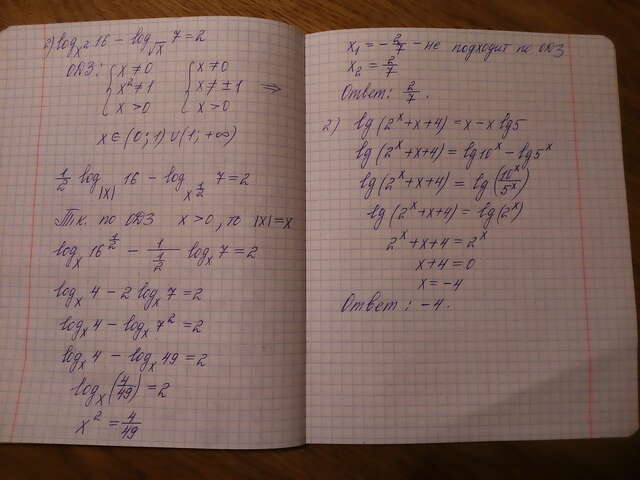 2) log_{x^2} 16 − log_{√x} 7 = 2
ОДЗ: { x ≠ 0 { x ≠ 0
x^2 ≠ 1 x ≠ ±1 ⇒
x > 0 x > 0
x ∈ (0; 1) ∪ (1; +∞)
1/2 log_{|x|} 16 − log_{x^{1/2}} 7 = 2
Т.к. по ОДЗ x > 0, то |x| = x
log_x 16^{1/2} − 1/(1/2) log_x 7 = 2
log_x 4 − 2 log_x 7 = 2
log_x 4 − log_x 7^2 = 2
log_x 4 − log_x 49 = 2
log_x (4/49) = 2
x^2 = 4/49
x_1 = −2/7 – не подходит по ОДЗ
x_2 = 2/7
Ответ: 2/7.
2) lg(2^x + x + 4) = x − x lg5
lg(2^x + x + 4) = lg10^x − lg5^x
lg(2^x + x + 4) = lg(10^x/5^x)
lg(2^x + x + 4) = lg(2^x)
2^x + x + 4 = 2^x
x + 4 = 0
x = −4
Ответ: −4.